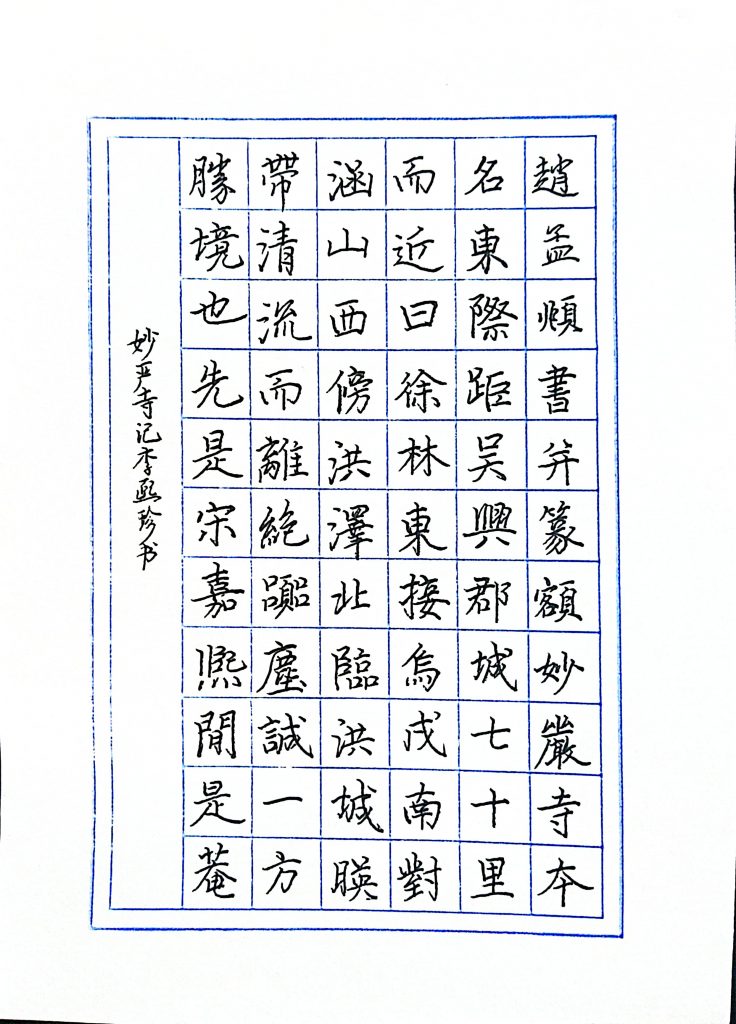 趙孟頫書并篆額妙嚴寺本
名東際距吴興郡城七十里
而近曰徐林東接烏戍南對
涵山西傍洪澤北臨洪城暎
帶清流而離絶嚻塵誠一方
勝境也先是宋嘉熈間是菴
妙严寺记李熙珍书